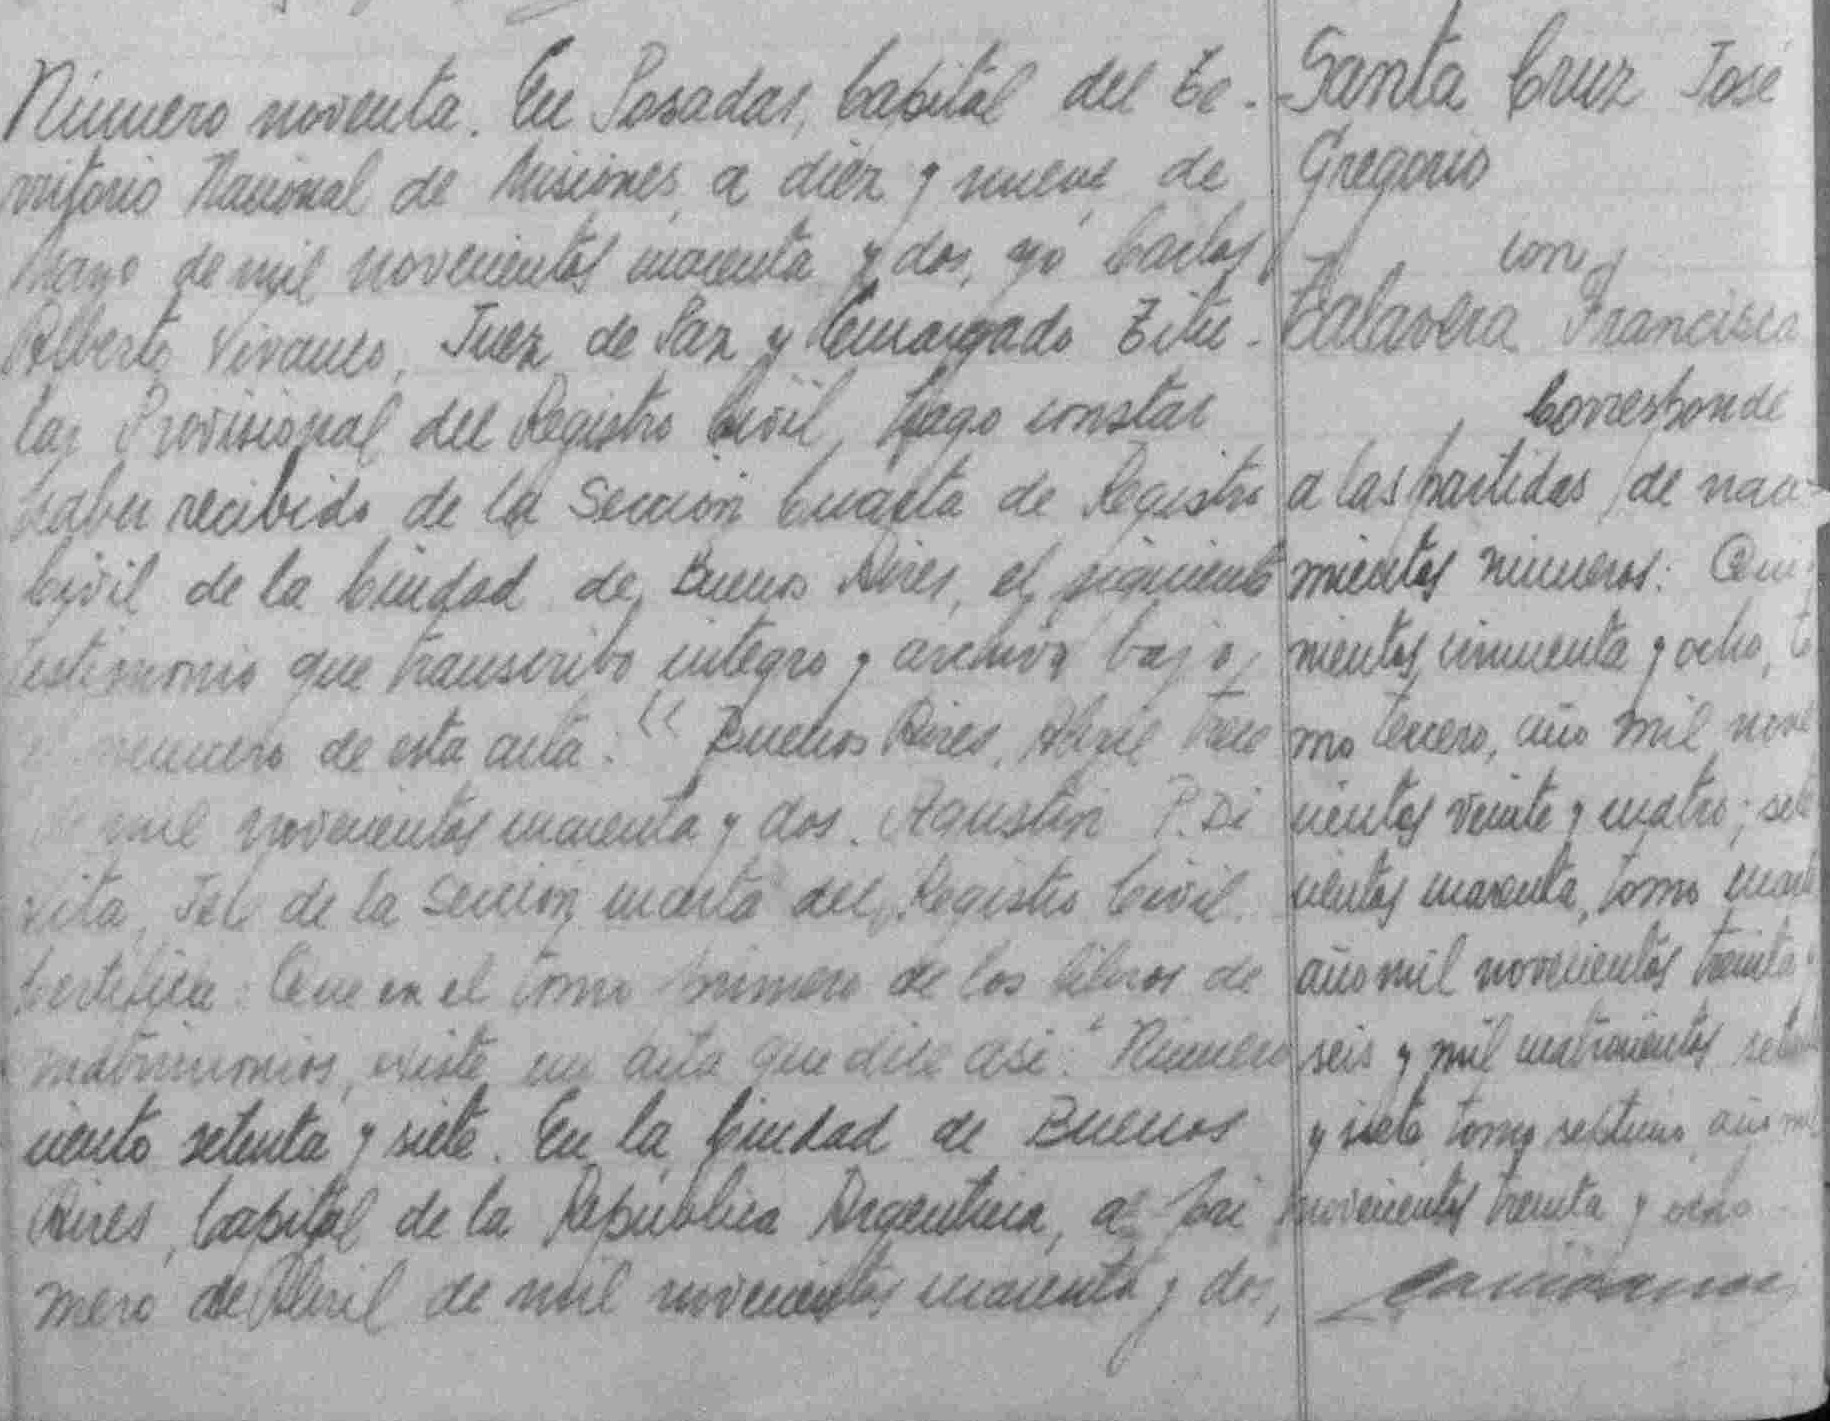 Número noventa. En Posadas, Capital del Te-
rritorio Nacional de Misiones, a diez y nueve de
Mayo de mil novecientos cuarenta y dos, yo Carlos
Alberto Vivanco, Juez de Paz y Encargado Titu-
lar Provisional del Registro Civil, hago constar
haber recibido de la Sección Cuarta de Registro
Civil de la Ciudad de Buenos Aires, el siguiente
testimonio que transcribo integro y archivo bajo
número de esta acta: "Buenos Aires, Abril trece
de mil novecientos cuarenta y dos. Agustín P. Di
Vita, Jefe de la Sección cuarta del Registro Civil.
Certifica: Que en el tomo primero de los libros de
matrimonios, existe un acta que dice asi: "Número
ciento setenta y siete. En la Ciudad de Buenos
Aires, Capital de la República Argentina, a pri
mero de Abril de mil novecientos cuarenta y dos,
Santa Cruz José
Gregorio
con
Talavera Francisca
Corresponde
a las partidas de naci-
mientos números: Qui-
nientos cincuenta y ocho, to
mo tercero, año mil nove
cientos veinte y cuatro; sete
cientos cuarenta, tomo cuarto
año mil novecientos treinta y
seis y mil cuatrocientos setenta
y siete, tomo septimo, año mil
novecientos treinta y ocho